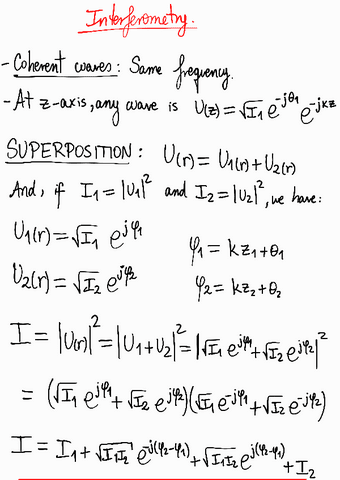 Interferometry.
- Coherent waves: Same frequency.
- At z-axis, any wave is U(z) = √I₁ e^{-jθ₁} e^{-jkz}
SUPERPOSITION: U(r) = U₁(r) + U₂(r)
And, if I₁ = |U₁|² and I₂ = |U₂|², we have:
U₁(r) = √I₁ e^{jφ₁} φ₁ = kz₁ + θ₁
U₂(r) = √I₂ e^{jφ₂} φ₂ = kz₂ + θ₂
I = |U(r)|² = |U₁ + U₂|² = |√I₁ e^{jφ₁} + √I₂ e^{jφ₂}|²
= (√I₁ e^{jφ₁} + √I₂ e^{jφ₂})(√I₁ e^{-jφ₁} + √I₂ e^{-jφ₂})
I = I₁ + √I₁I₂ e^{-j(φ₂-φ₁)} + √I₁I₂ e^{j(φ₂-φ₁)} + I₂